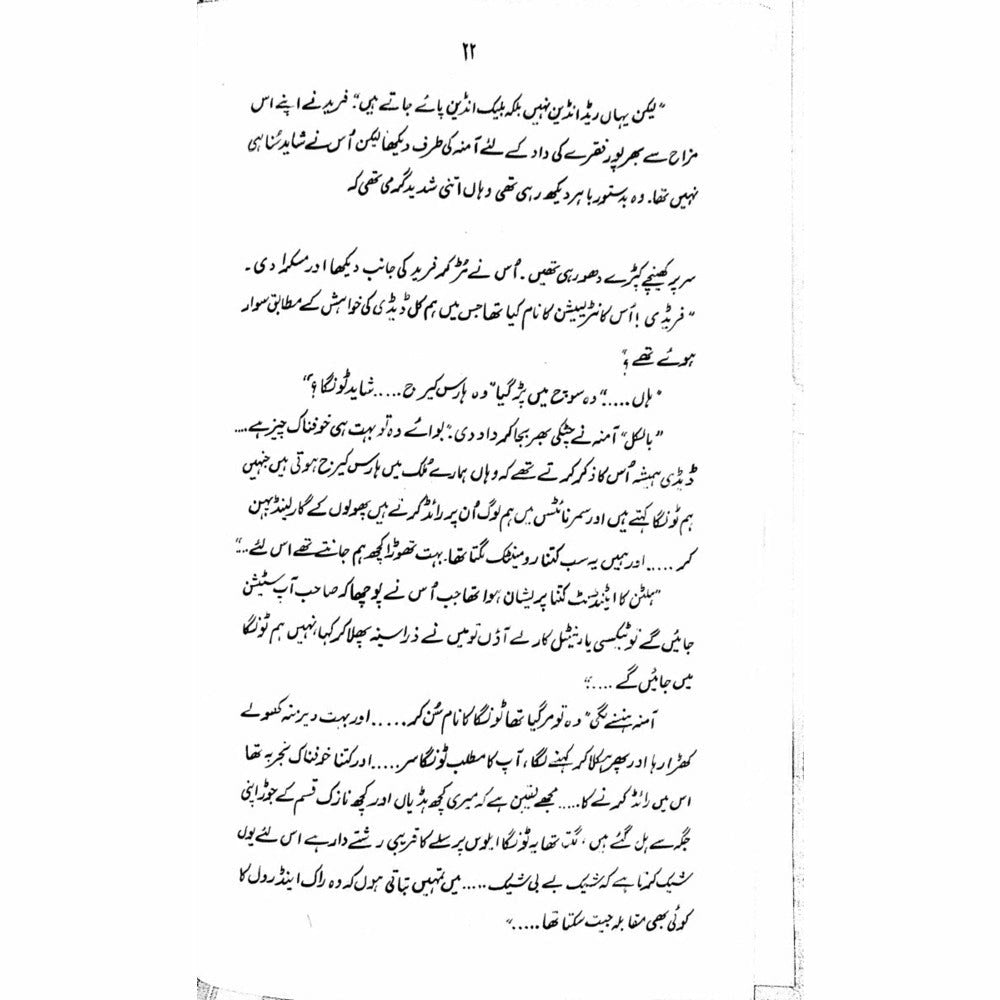 ۲۲
"لیکن یہاں ریڈ انڈین نہیں بلکہ بلیک انڈین پائے جاتے ہیں۔" فرید نے اپنے اس
مزاح سے بھر پور فقرے کی داد کے لئے آمنہ کی طرف دیکھا لیکن اُس نے شاید سُنا ہی
نہیں تھا۔ وہ بدستور باہر دیکھ رہی تھی وہاں اتنی شدید گرمی تھی کہ
سر پر کھینچے کپڑے دھو رہی تھیں۔ اُس نے مُڑ کر فرید کی جانب دیکھا اور مسکرا دی۔
"فریڈی! اُس کانٹریپشن کا نام کیا تھا جس میں ہم کل ڈیڈی کی خواہش کے مطابق سوار
ہوئے تھے؟"
"ہاں....." وہ سوچ میں پڑ گیا "وہ ہارس کیرج..... شاید ٹونگا؟"
"بالکل" آمنہ نے چٹکی بھر بجا کر داد دی۔ "بوائے وہ تو بہت ہی خوفناک چیز ہے....
ڈیڈی ہمیشہ اُس کا ذکر کرتے تھے کہ وہاں ہمارے مُلک میں ہارس کیرج ہوتی ہیں جنہیں
ہم ٹونگا کہتے ہیں اور سمر نائٹس میں ہم لوگ اُن پر رائڈ کرتے ہیں پھولوں کے گارلینڈ پہن
کر ..... اور ہمیں یہ سب کتنا رومینٹک لگتا تھا۔ بہت تھوڑا کچھ ہم جانتے تھے اس لئے..."
"ہلٹن کا اٹینڈنٹ کتنا پریشان ہوا تھا جب اُس نے پوچھا کہ صاحب آپ سٹیشن
جائیں گے تو ٹیکسی یا رینٹل کار لے آؤں تو میں نے ذرا سینہ پھلا کر کہا، نہیں ہم ٹونگا
میں جائیں گے ....."
آمنہ ہنسنے لگی "وہ تو مر گیا تھا ٹونگا کا نام سُن کر..... اور بہت دیر منہ کھولے
کھڑا رہا اور پھر ہکلا کر کہنے لگا، آپ کا مطلب ٹونگا سر..... اور کتنا خوفناک تجربہ تھا
اس میں رائڈ کرنے کا..... مجھے یقین ہے کہ میری کچھ ہڈیاں اور کچھ نازک قسم کے جوڑ اپنی
جگہ سے ہل گئے ہیں، لگتا تھا یہ ٹونگا ایلوس پرسلے کا قریبی رشتے دار ہے اس لئے یوں
شیک کرتا ہے کہ شیک بے بی شیک ..... میں تمہیں بتاتی ہوں کہ وہ راک اینڈ رول کا
کوئی بھی مقابلہ جیت سکتا تھا....."